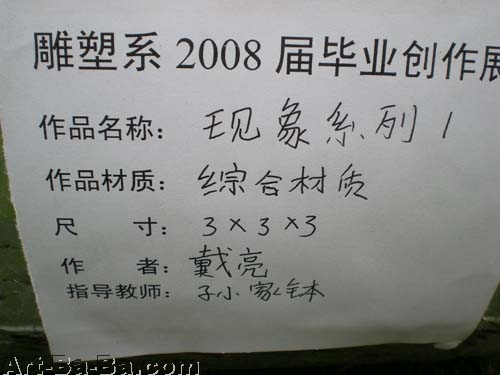 雕塑系 2008 届毕业创作展
作品名称: 现象系列 1
作品材质: 综合材质
尺 寸: 3×3×3
作 者: 戴亮
指导教师:
Art-Ba-Ba.com